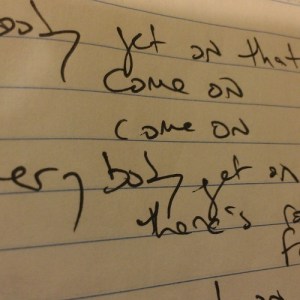 ody get on that
come on
come on
ery body get on
there's